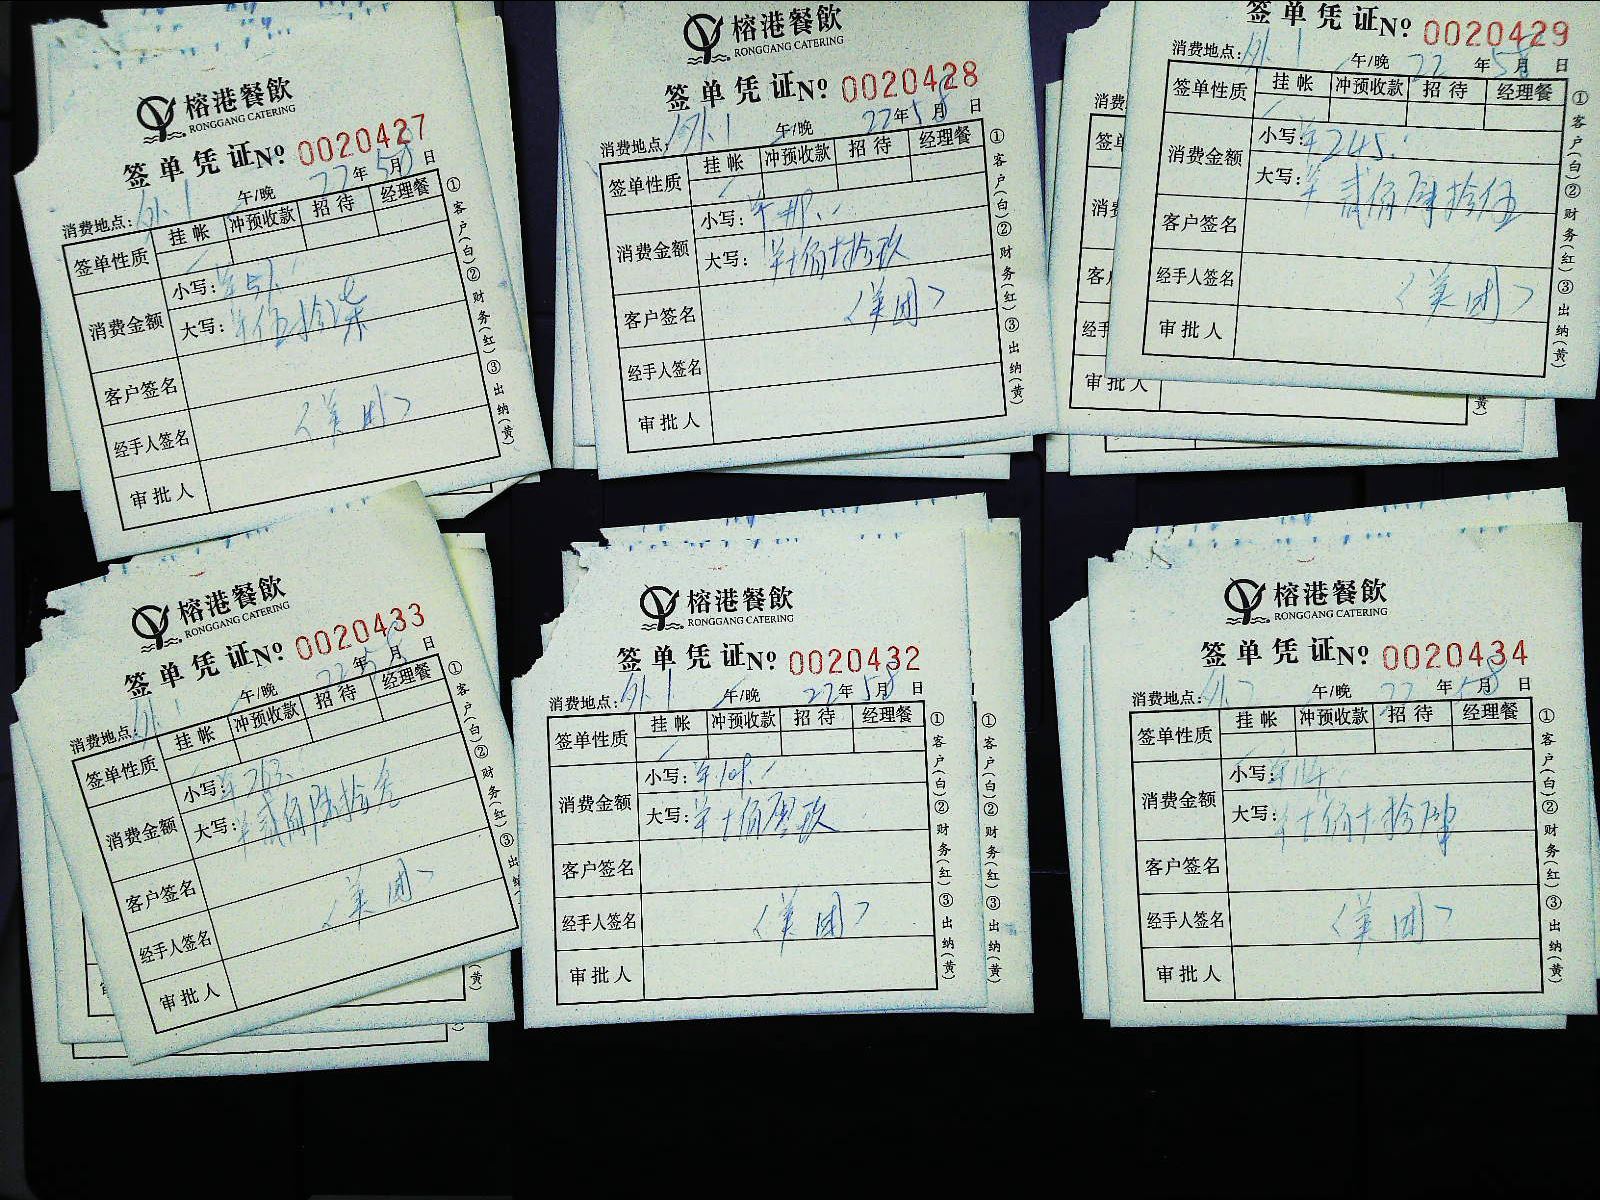 榕港餐飲
RONGGANG CATERING
签单凭证№ 0020427
消费地点: 外1 午/晚 22年5月8日
签单性质 挂帐 冲预收款 招待 经理餐
消费金额 小写: ¥57.
大写: ¥伍拾柒
客户签名
经手人签名 〈美团〉
审批人
①客户(白)②财务(红)③出纳(黄)
榕港餐飲
RONGGANG CATERING
签单凭证№ 0020428
消费地点: 外1 午/晚 22年5月8日
签单性质 挂帐 冲预收款 招待 经理餐
消费金额 小写:
大写:
客户签名 〈美团〉
经手人签名
审批人
①客户(白)②财务(红)③出纳(黄)
签单凭证№ 0020429
消费地点: 外1 午/晚 22年5月8日
签单性质 挂帐 冲预收款 招待 经理餐
消费金额 小写: ¥245.
大写: ¥贰佰肆拾伍
客户签名
经手人签名 〈美团〉
审批人
①客户(白)②财务(红)③出纳(黄)
审批人
榕港餐飲
RONGGANG CATERING
签单凭证№ 0020433
消费地点: 外1 午/晚 22年5月8日
签单性质 挂帐 冲预收款 招待 经理餐
消费金额 小写:
大写: ¥贰佰陆拾
客户签名 〈美团〉
经手人签名
审批人
①客户(白)②财务(红)③出
榕港餐飲
RONGGANG CATERING
签单凭证№ 0020432
消费地点: 外1 午/晚 22年5月8日
签单性质 挂帐 冲预收款 招待 经理餐
消费金额 小写: ¥109.
大写: ¥壹佰零玖
客户签名
经手人签名 〈美团〉
审批人
①客户(白)②财务(红)③出纳(黄)
①客户(白)②财务(红)③出纳(黄)
榕港餐飲
RONGGANG CATERING
签单凭证№ 0020434
消费地点: 外2 午/晚 22年5月8日
签单性质 挂帐 冲预收款 招待 经理餐
消费金额 小写: ¥114.
大写:
客户签名
经手人签名 〈美团〉
审批人
①客户(白)②财务(红)③出纳(黄)